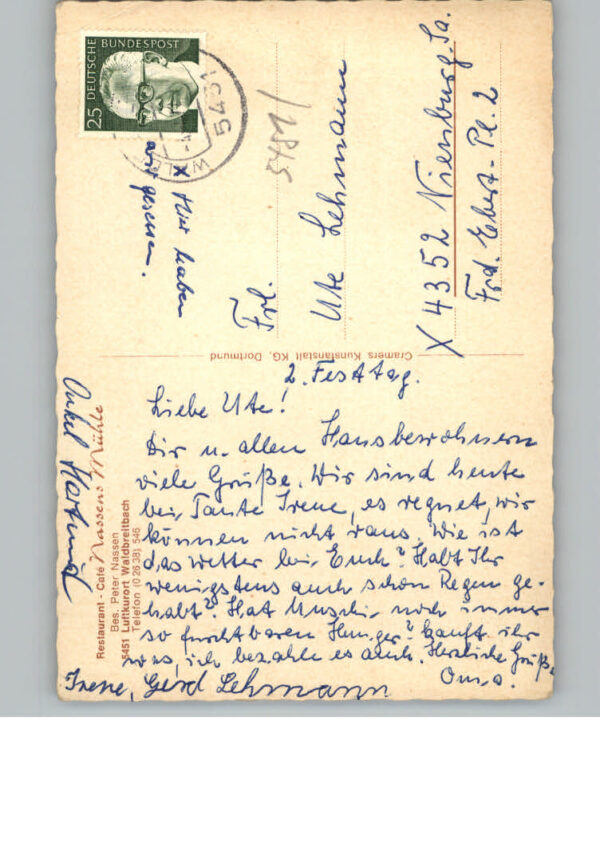 DEUTSCHE BUNDESPOST
25
5451
5451/
x Hier haben
wir gesessen.
Frl.
Ute Lehmann
X 4352 Nienburg. Sa.
Frd. Ebert-Pl. 2
Cramers Kunstanstalt KG, Dortmund
Restaurant - Café Nassens Mühle
Bes. Peter Nassen
5451 Luftkurort Waldbreitbach
Telefon (0 26 38) 546
2. Festtag.
Liebe Ute!
Dir u. allen Hausbewohnern
viele Grüße. Wir sind heute
bei Tante Irene, es regnet, wir
können nicht raus. Wie ist
das Wetter bei Euch? Habt Ihr
wenigstens auch schon Regen ge-
habt? Hat Muschi noch immer
so furchtbaren Hunger? Kauft ihr
was, ich bezahle es auch. Herzliche Grüße
Oma.
Irene, Gerd Lehmann
Onkel Hartmut